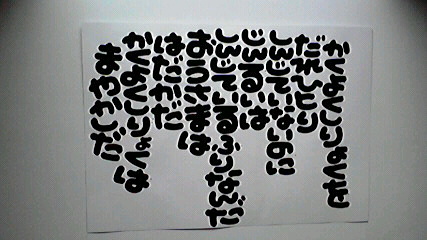 かくよくしりょくを
だれひとり
しんじていないのに
じんるいは
しんじているふりなんだ
おうさまは
はだかだ
かくよくしりょくは
まやかしだ